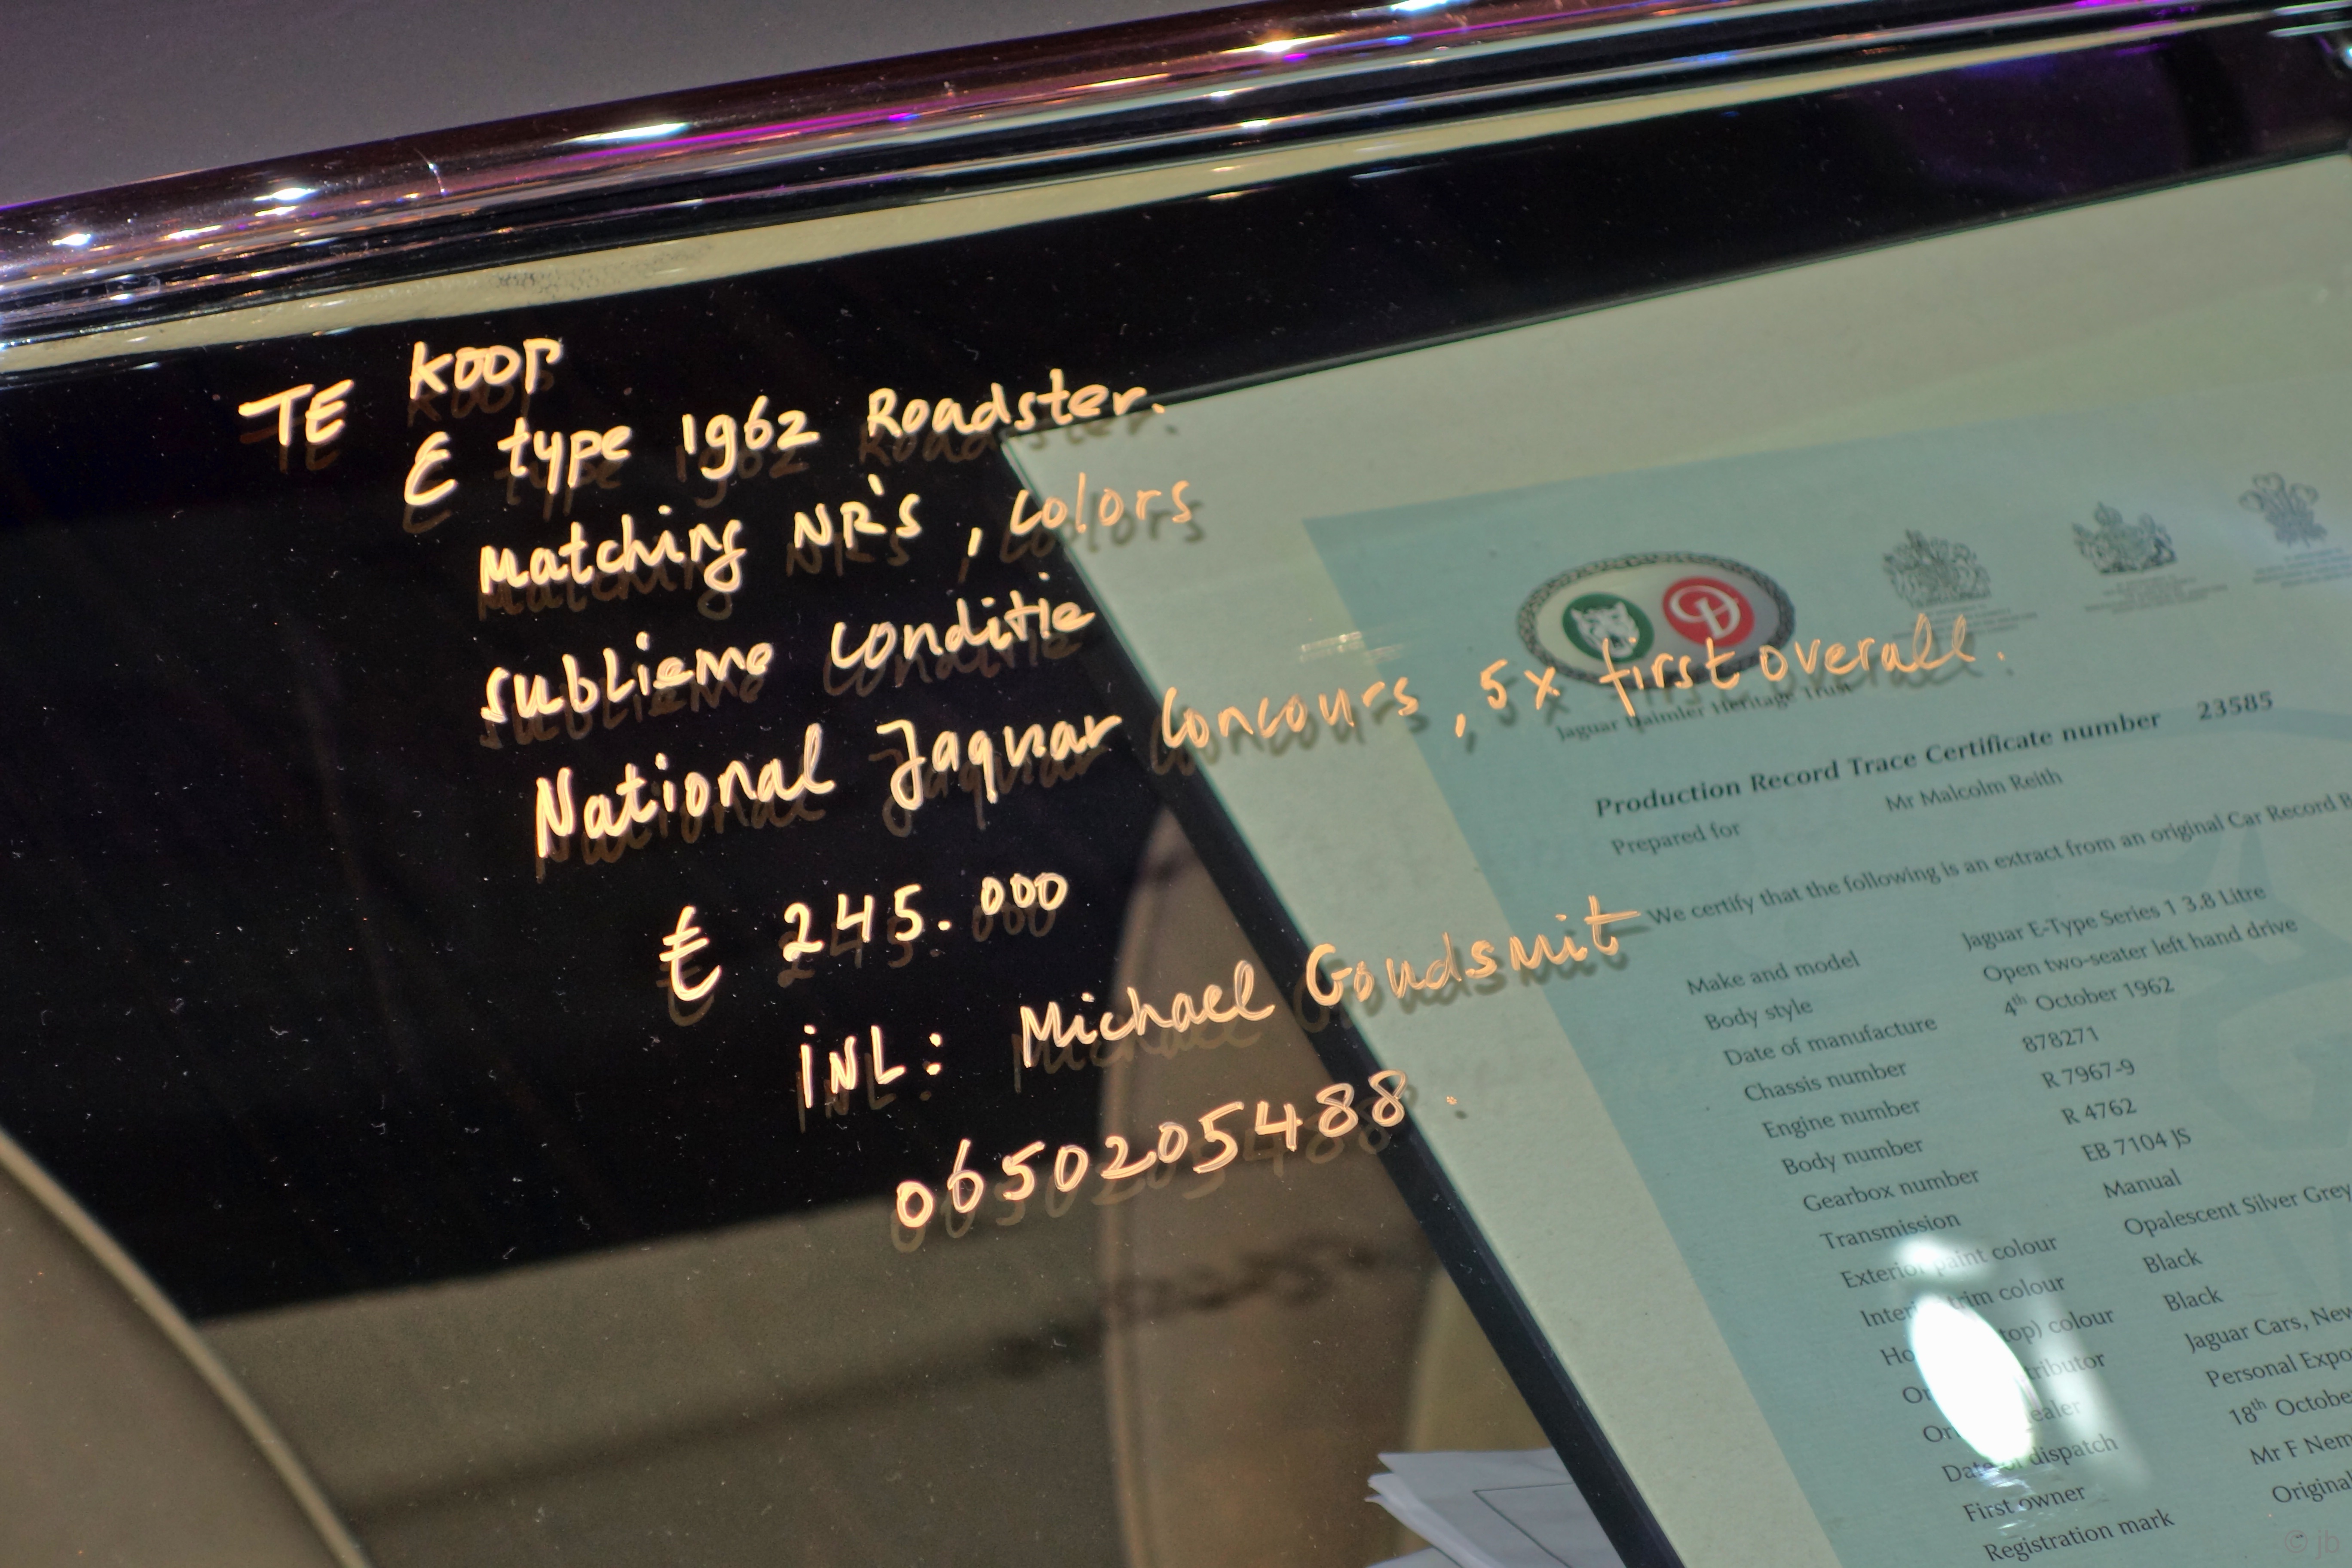 TE KOOP
E type 1962 Roadster.
Matching NR's, Colors
Sublieme Conditie
National Jaquar Concours, 5x first overall.
€ 245.000
INL: Michael Goudsmit
0650205488.
Jaguar Daimler Heritage Trust
Production Record Trace Certificate number 23585
Prepared for Mr Malcolm Reith
We certify that the following is an extract from an original Car Record
Make and model Jaguar E-Type Series 1 3.8 Litre
Body style Open two-seater left hand drive
Date of manufacture 4th October 1962
Chassis number 878271
Engine number R 7967-9
Body number R 4762
Gearbox number EB 7104 JS
Transmission Manual
Exterior paint colour Opalescent Silver Grey
Interior trim colour Black
top) colour Black
Jaguar Cars, New
Personal Expo
Date of dispatch 18th Octobe
First owner Mr F Nem
Registration mark Original
© jb